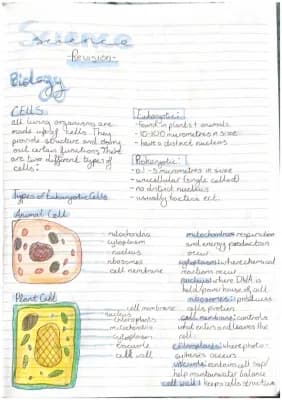 Science
-Revision-
Biology
CELLS
all living organisms are
made up of cells. They
provide structure and
out certain functions. There
are two different types of
cells:
Eukaryotic:
- found in plants + animals
- 10-100 micrometres in size
- have a distinct nucleus
Prokaryotic:
- 0.1 - 5 micrometres in size
- unicellular (single celled)
- no distinct nucleus
- usually bacteria ect.
Types of Eukaryotic Cells
Animal Cell
mitochondria
cytoplasm
nucleus
ribosomes
cell membrane
Plant Cell
cell membrane
nucleus
chloroplasts
mitochondria
cytoplasm
vacuole
cell wall
mitochondria: respiration
and energy production
occur
cytoplasm: where chemical
reactions occur
nucleus: where DNA is
held/ of cell
ribosomes: produces
cells protein
cell membrane: controls
what enters and leaves the
cell
chloroplasts: where photo-
synthesis occurs
vacuole: contains cell sap/
help maintain balance
cell wall: keeps cell structure